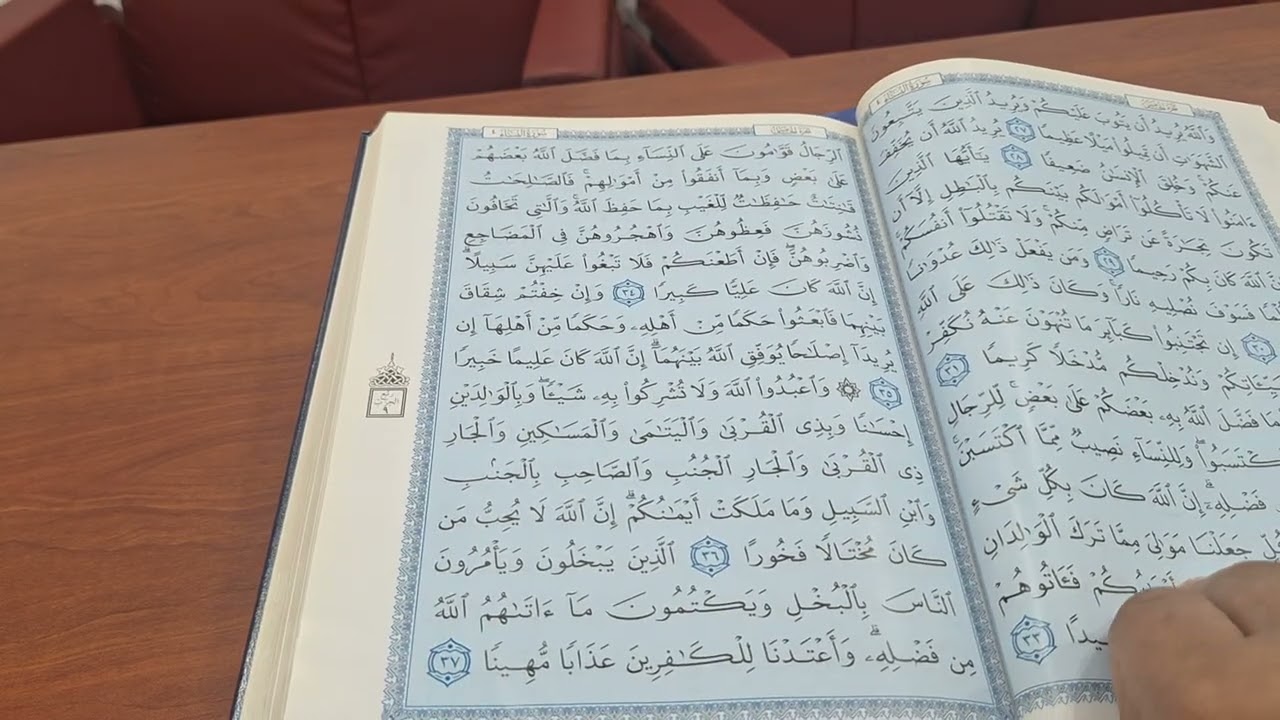 سُورَةُ النِّسَاءِ ٤
وَٱللَّهُ يُرِيدُ أَن يَتُوبَ عَلَيْكُمْ وَيُرِيدُ ٱلَّذِينَ يَتَّبِعُونَ
ٱلشَّهَوَٰتِ أَن تَمِيلُوا۟ مَيْلًا عَظِيمًا ٢٧ يُرِيدُ ٱللَّهُ أَن يُخَفِّفَ
عَنكُمْ وَخُلِقَ ٱلْإِنسَٰنُ ضَعِيفًا ٢٨ يَٰٓأَيُّهَا ٱلَّذِينَ
ءَامَنُوا۟ لَا تَأْكُلُوٓا۟ أَمْوَٰلَكُم بَيْنَكُم بِٱلْبَٰطِلِ إِلَّآ أَن
تَكُونَ تِجَٰرَةً عَن تَرَاضٍ مِّنكُمْ وَلَا تَقْتُلُوٓا۟ أَنفُسَكُمْ
ٱللَّهَ كَانَ بِكُمْ رَحِيمًا ٢٩ وَمَن يَفْعَلْ ذَٰلِكَ عُدْوَٰنًا
فَسَوْفَ نُصْلِيهِ نَارًا وَكَانَ ذَٰلِكَ عَلَى ٱللَّهِ
٣٠ إِن تَجْتَنِبُوا۟ كَبَآئِرَ مَا تُنْهَوْنَ عَنْهُ نُكَفِّرْ
وَنُدْخِلْكُم مُّدْخَلًا كَرِيمًا ٣١
فَضَّلَ ٱللَّهُ بِهِۦ بَعْضَكُمْ عَلَىٰ بَعْضٍ لِّلرِّجَالِ
وَلِلنِّسَآءِ نَصِيبٌ مِّمَّا ٱكْتَسَبْنَ
فَضْلِهِۦٓ إِنَّ ٱللَّهَ كَانَ بِكُلِّ شَىْءٍ
جَعَلْنَا مَوَٰلِىَ مِمَّا تَرَكَ ٱلْوَٰلِدَانِ
فَـَٔاتُوهُمْ
٣٣
سُورَةُ النِّسَاءِ ٤
ٱلرِّجَالُ قَوَّٰمُونَ عَلَى ٱلنِّسَآءِ بِمَا فَضَّلَ ٱللَّهُ بَعْضَهُمْ
عَلَىٰ بَعْضٍ وَبِمَآ أَنفَقُوا۟ مِنْ أَمْوَٰلِهِمْ ۚ فَٱلصَّٰلِحَٰتُ
قَٰنِتَٰتٌ حَٰفِظَٰتٌ لِّلْغَيْبِ بِمَا حَفِظَ ٱللَّهُ ۚ وَٱلَّٰتِى تَخَافُونَ
نُشُوزَهُنَّ فَعِظُوهُنَّ وَٱهْجُرُوهُنَّ فِى ٱلْمَضَاجِعِ
وَٱضْرِبُوهُنَّ ۖ فَإِنْ أَطَعْنَكُمْ فَلَا تَبْغُوا۟ عَلَيْهِنَّ سَبِيلًا ۗ
إِنَّ ٱللَّهَ كَانَ عَلِيًّا كَبِيرًا ٣٤ وَإِنْ خِفْتُمْ شِقَاقَ
بَيْنِهِمَا فَٱبْعَثُوا۟ حَكَمًا مِّنْ أَهْلِهِۦ وَحَكَمًا مِّنْ أَهْلِهَآ إِن
يُرِيدَآ إِصْلَٰحًا يُوَفِّقِ ٱللَّهُ بَيْنَهُمَآ ۗ إِنَّ ٱللَّهَ كَانَ عَلِيمًا خَبِيرًا
٣٥ ۞ وَٱعْبُدُوا۟ ٱللَّهَ وَلَا تُشْرِكُوا۟ بِهِۦ شَيْـًٔا ۖ وَبِٱلْوَٰلِدَيْنِ
إِحْسَٰنًا وَبِذِى ٱلْقُرْبَىٰ وَٱلْيَتَٰمَىٰ وَٱلْمَسَٰكِينِ وَٱلْجَارِ
ذِى ٱلْقُرْبَىٰ وَٱلْجَارِ ٱلْجُنُبِ وَٱلصَّاحِبِ بِٱلْجَنۢبِ
وَٱبْنِ ٱلسَّبِيلِ وَمَا مَلَكَتْ أَيْمَٰنُكُمْ ۗ إِنَّ ٱللَّهَ لَا يُحِبُّ مَن
كَانَ مُخْتَالًا فَخُورًا ٣٦ ٱلَّذِينَ يَبْخَلُونَ وَيَأْمُرُونَ
ٱلنَّاسَ بِٱلْبُخْلِ وَيَكْتُمُونَ مَآ ءَاتَىٰهُمُ ٱللَّهُ
مِن فَضْلِهِۦ ۗ وَأَعْتَدْنَا لِلْكَٰفِرِينَ عَذَابًا مُّهِينًا ٣٧